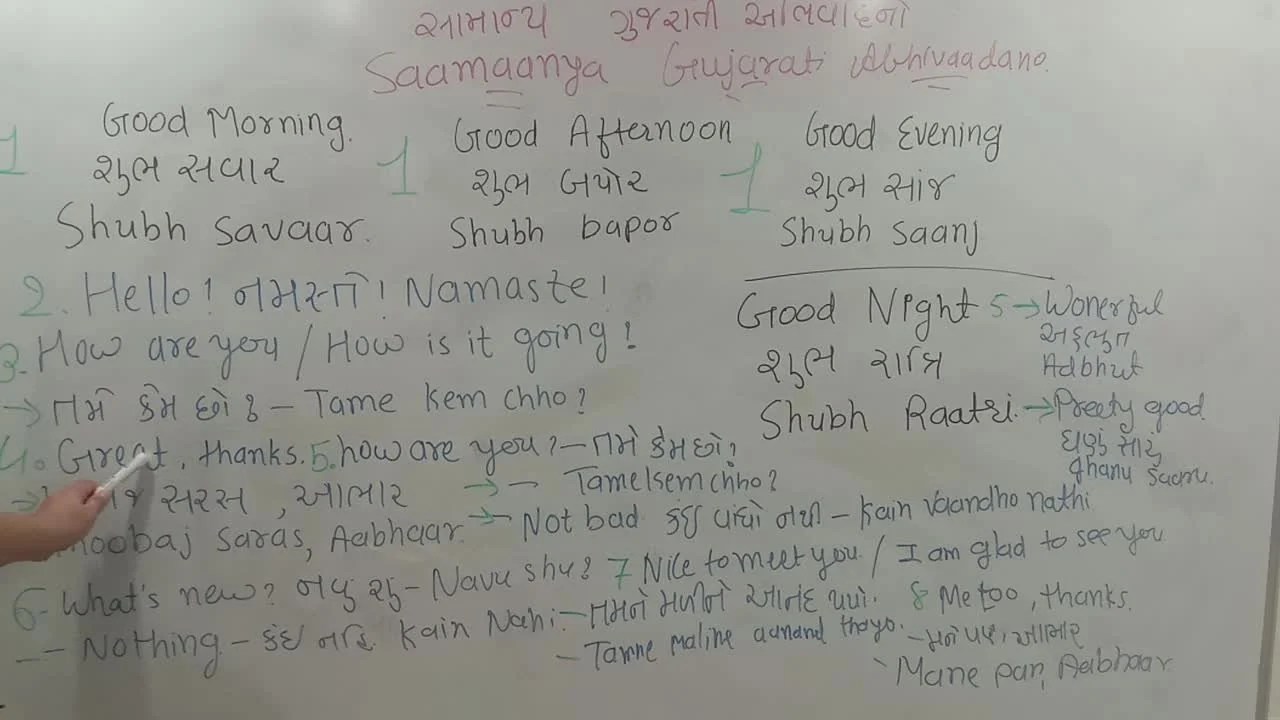 સામાન્ય ગુજરાતી અભિવાદનો
Saamaanya Gujarati Abhivaadano.
1 Good Morning.
શુભ સવાર
Shubh Savaar.
1 Good Afternoon
શુભ બપોર
Shubh bapor
1 Good Evening
શુભ સાંજ
Shubh Saanj
2. Hello! નમસ્તે! Namaste!
3. How are you / How is it going!
→ તમે કેમ છો? – Tame kem chho?
Good Night
શુભ રાત્રિ
Shubh Raatri.
5 → Wonerful
અદ્ભુત
Adbhut
→ Preety good
ઘણું સારું
ghanu saaru.
4. Great, thanks. 5. how are you? – તમે કેમ છો?
→ – Tame kem chho?
→ જ સરસ, આભાર
hoobaj saras, Aabhaar.
→ – Not bad કંઇ વાંધો નથી – kain vaandho nathi
6 – What's new? નવુ શુ – Navu shu?
– – Nothing – કંઇ નહિ. Kain Nahi.
7 Nice to meet you / I am glad to see you
– તમને મળીને આનંદ થયો.
– Tamne maline aanand thayo.
8 Me too, thanks.
– મને પણ, આભાર
Mane pan, Aabhaar